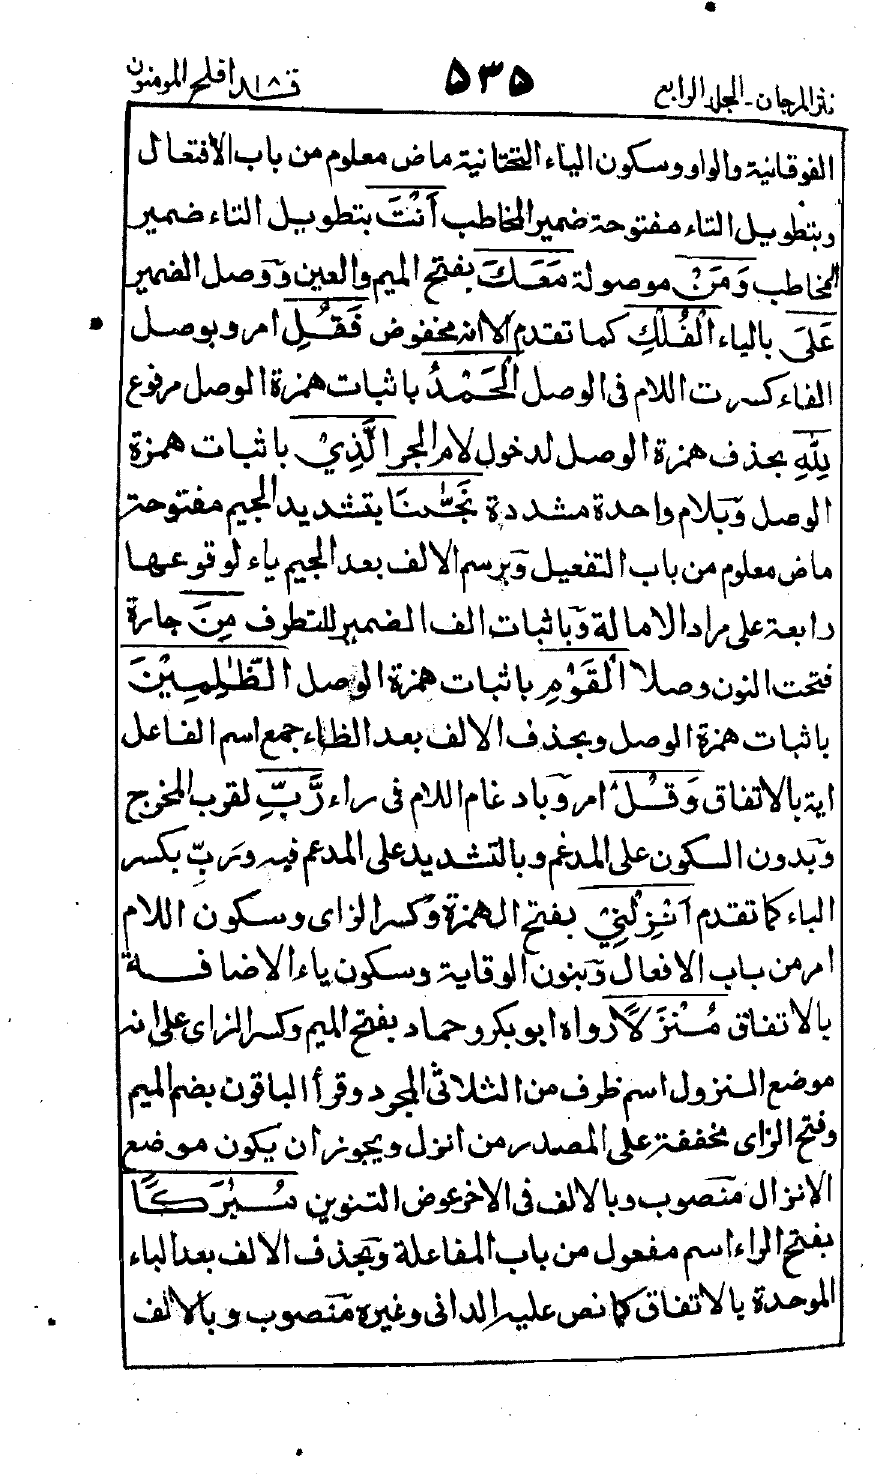 نثر المرجان - المجلد الرابع
٥٣٥
قد افلح ١٨ المومنون
الفوقانية والواو وسكون الياء التحتانية ماض معلوم من باب الافتعال
وبتطويل التاء مفتوحة ضمير المخاطب أَنْتَ بتطويل التاء ضمير
المخاطب وَمَنْ موصولة مَعَكَ بفتح الميم والعين ووصل الضمير
عَلَى بالياء الْفُلْكِ كما تقدم الا انه مخفوض فَقُلِ امر وبوصل
الفاء كسرت اللام فى الوصل الْحَمْدُ باثبات همزة الوصل مرفوع
لِلّٰهِ بحذف همزة الوصل لدخول لام الجر الَّذِيْ باثبات همزة
الوصل وبلام واحدة مشددة نَجّٰىنَا بتشديد الجيم مفتوحة
ماض معلوم من باب التفعيل وبرسم الالف بعد الجيم ياء لوقوعها
رابعة على مراد الامالة وباثبات الف الضمير للتطرف مِنَ جارة
فتحت النون وصلا الْقَوْمِ باثبات همزة الوصل الظّٰلِمِيْنَ
باثبات همزة الوصل وبحذف الالف بعد الظاء جمع اسم الفاعل
اية بالاتفاق وَقُلْ امر وباد غام اللام فى راء رَّبِّ لقرب المخرج
وبدون السكون على المدغم وبالتشديد على المدعم فيه وَرَبِّ بكسر
الباء كما تقدم اَنْزِلْنِيْ بفتح الهمزة وكسر الزاى وسكون اللام
امر من باب الافعال وبنون الوقاية وسكون ياء الاضافة
بالاتفاق مُنْزَلًا رواه ابو بكر وحماد بفتح الميم وكسر الزاى على انه
موضع النزول اسم ظرف من الثلاثى المجرد وقرأ الباقون بضم الميم
وفتح الزاى مخففة على المصدر من انزل ويجوز ان يكون موضع
الانزال منصوب وبالالف فى الاخر عوض التنوين مُبٰرَكًا
بفتح الراء اسم مفعول من باب المفاعلة وبحذف الالف بعد الباء
الموحدة بالاتفاق كما نص عليه الدانى وغيره منصوب وبالالف